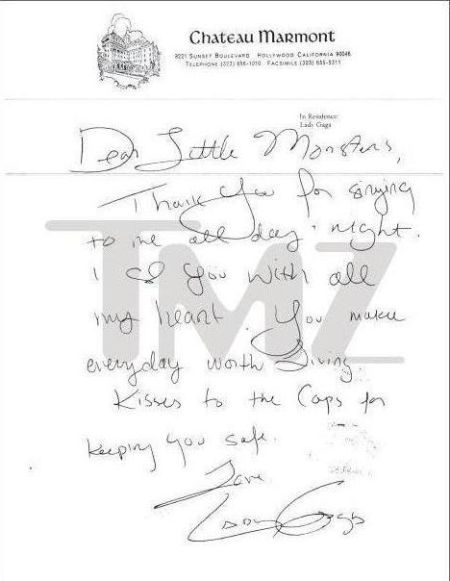 Chateau Marmont
8221 Sunset Boulevard Hollywood California 90046
Telephone (323) 656-1010 Facsimile (323) 655-5311
In Residence:
Lady Gaga
Dear Little Monsters,
Thank you for singing
to me all day & night.
I ♡ you with all
my heart. You make
everyday worth living
Kisses to the Cops for
keeping you safe.
Love
Lady Gaga
TMZ